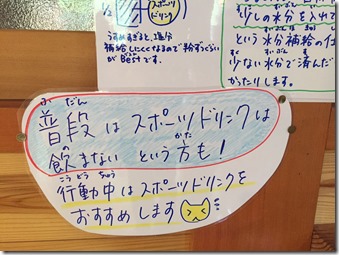 1/2
スポーツ
ドリンク
うすめすぎると、塩分
補給しにくくなるので粉ずつぐらい
がBestです。
少しの水分を入れて
という水分補給の仕
少ない水分で済んだ
かったりします。
ふだん
普段はスポーツドリンクは
の かた
飲まないという方も!
こうどうちゅう
行動中はスポーツドリンクを
おすすめします